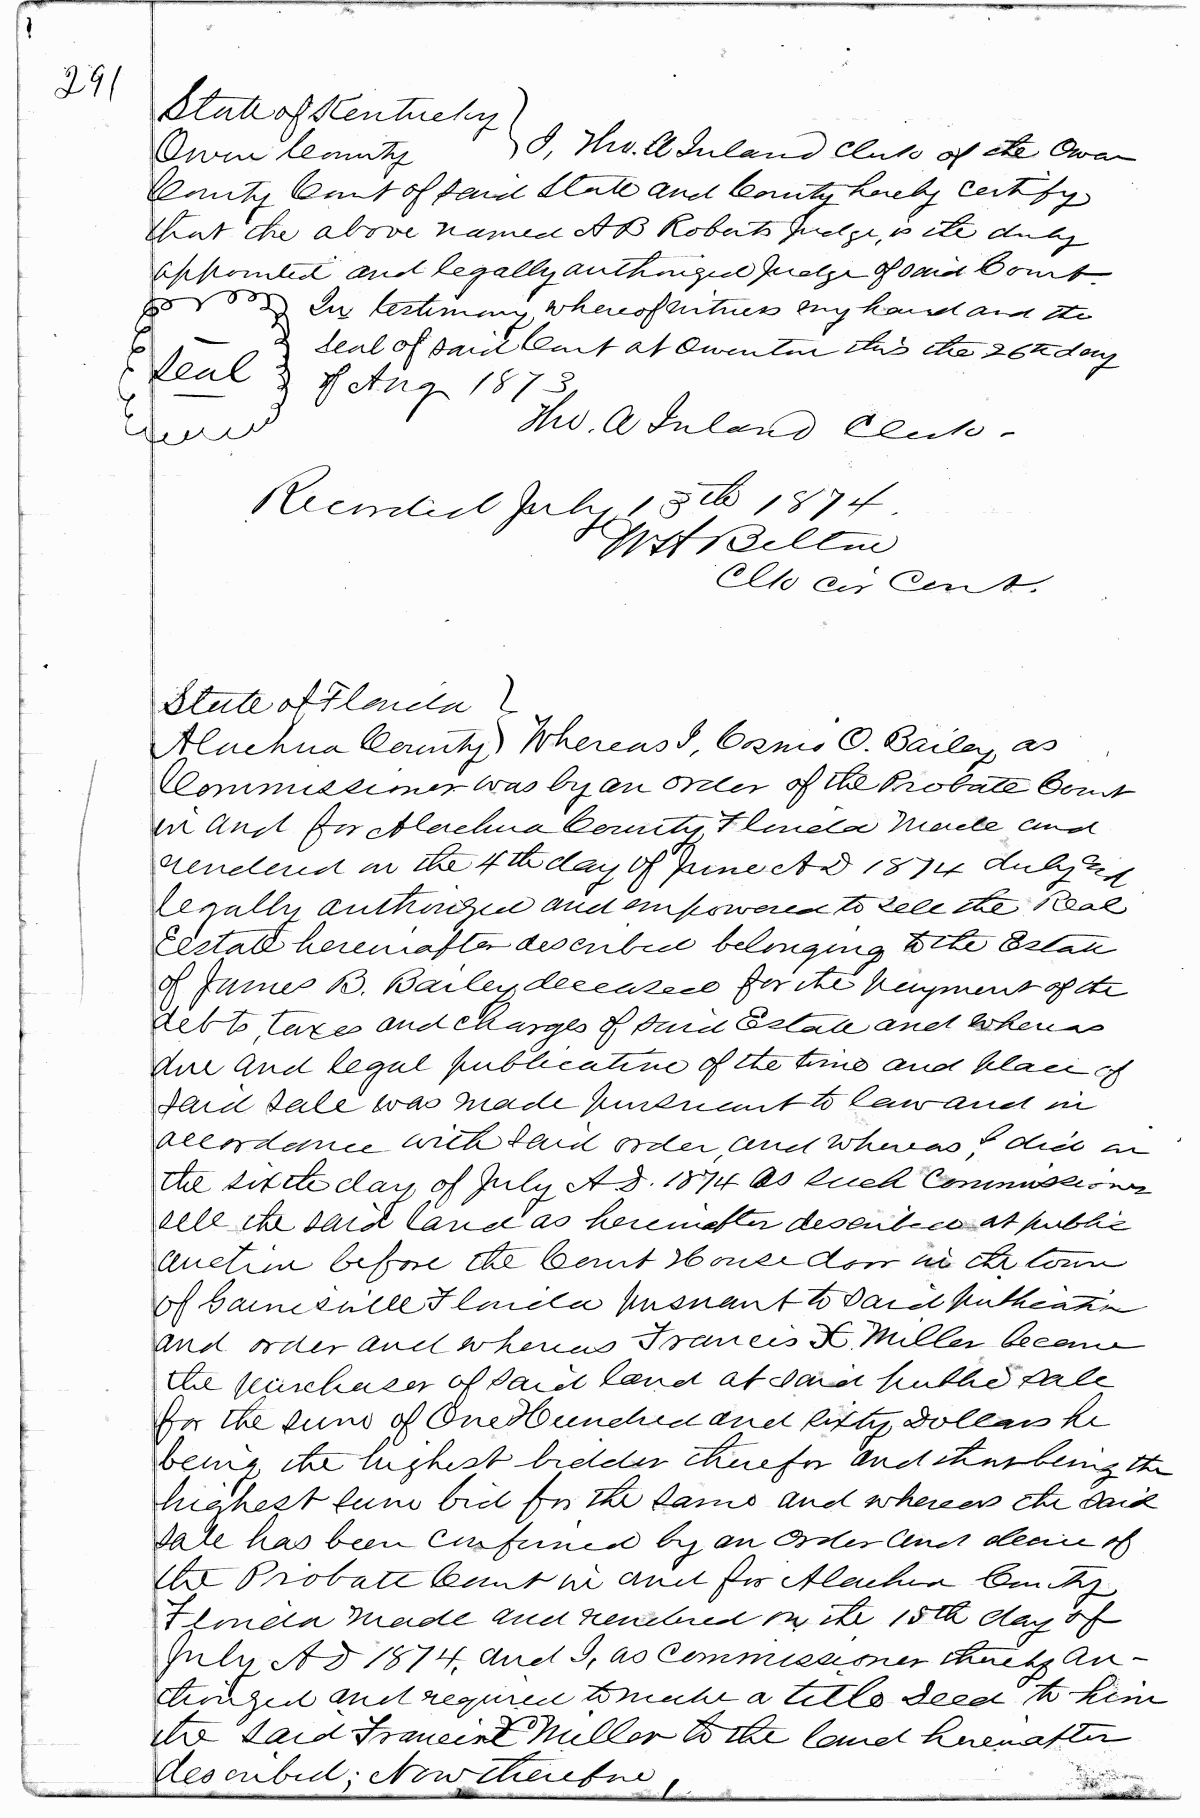 291
State of Kentucky
Owen County } I, Tho. A Inland Clerk of the Owen
County Court of said State and County hereby certify
that the above named A B Roberts Judge, is the duly
appointed and legally authorized Judge of said Court.
In testimony whereof witness my hand and the
seal of said Court at Owenton this the 26th day
Seal
of Aug 1873
Tho. A Inland Clerk -
Recorded July 13th 1874.
W H Belton
Clk Cir Court.
State of Florida
Alachua County } Whereas I, Cosmo O. Bailey as
Commissioner was by an order of the Probate Court
in and for Alachua County Florida Made and
rendered on the 4th day of June A D 1874 duly and
legally authorized and empowered to sell the Real
Eestate hereinafter described belonging to the Estate
of James B. Bailey deceased for the payment of the
debts, taxes and charges of said Estate and whereas
due and legal publication of the time and place of
said sale was made pursuant to law and in
accordance with said order, and whereas, I did on
the sixth day of July A D. 1874 as such Commissioner
sell the said land as hereinafter described at public
auction before the Court House door in the town
of Gainesville Florida pursuant to said publication
and order and whereas Francis X. Miller became
the purchaser of said land at said public sale
for the sum of One Hundred and sixty Dollars he
being the highest bidder therefor and that being the
highest sum bid for the same and whereas the said
sale has been confirmed by an order and decree of
the Probate Court in and for Alachua County
Florida Made and rendered on the 15th day of
July A D 1874, and I, as Commissioner thereby au-
thorized and required to make a title deed to him
the said Francis X Miller to the land hereinafter
described; Now therefore,